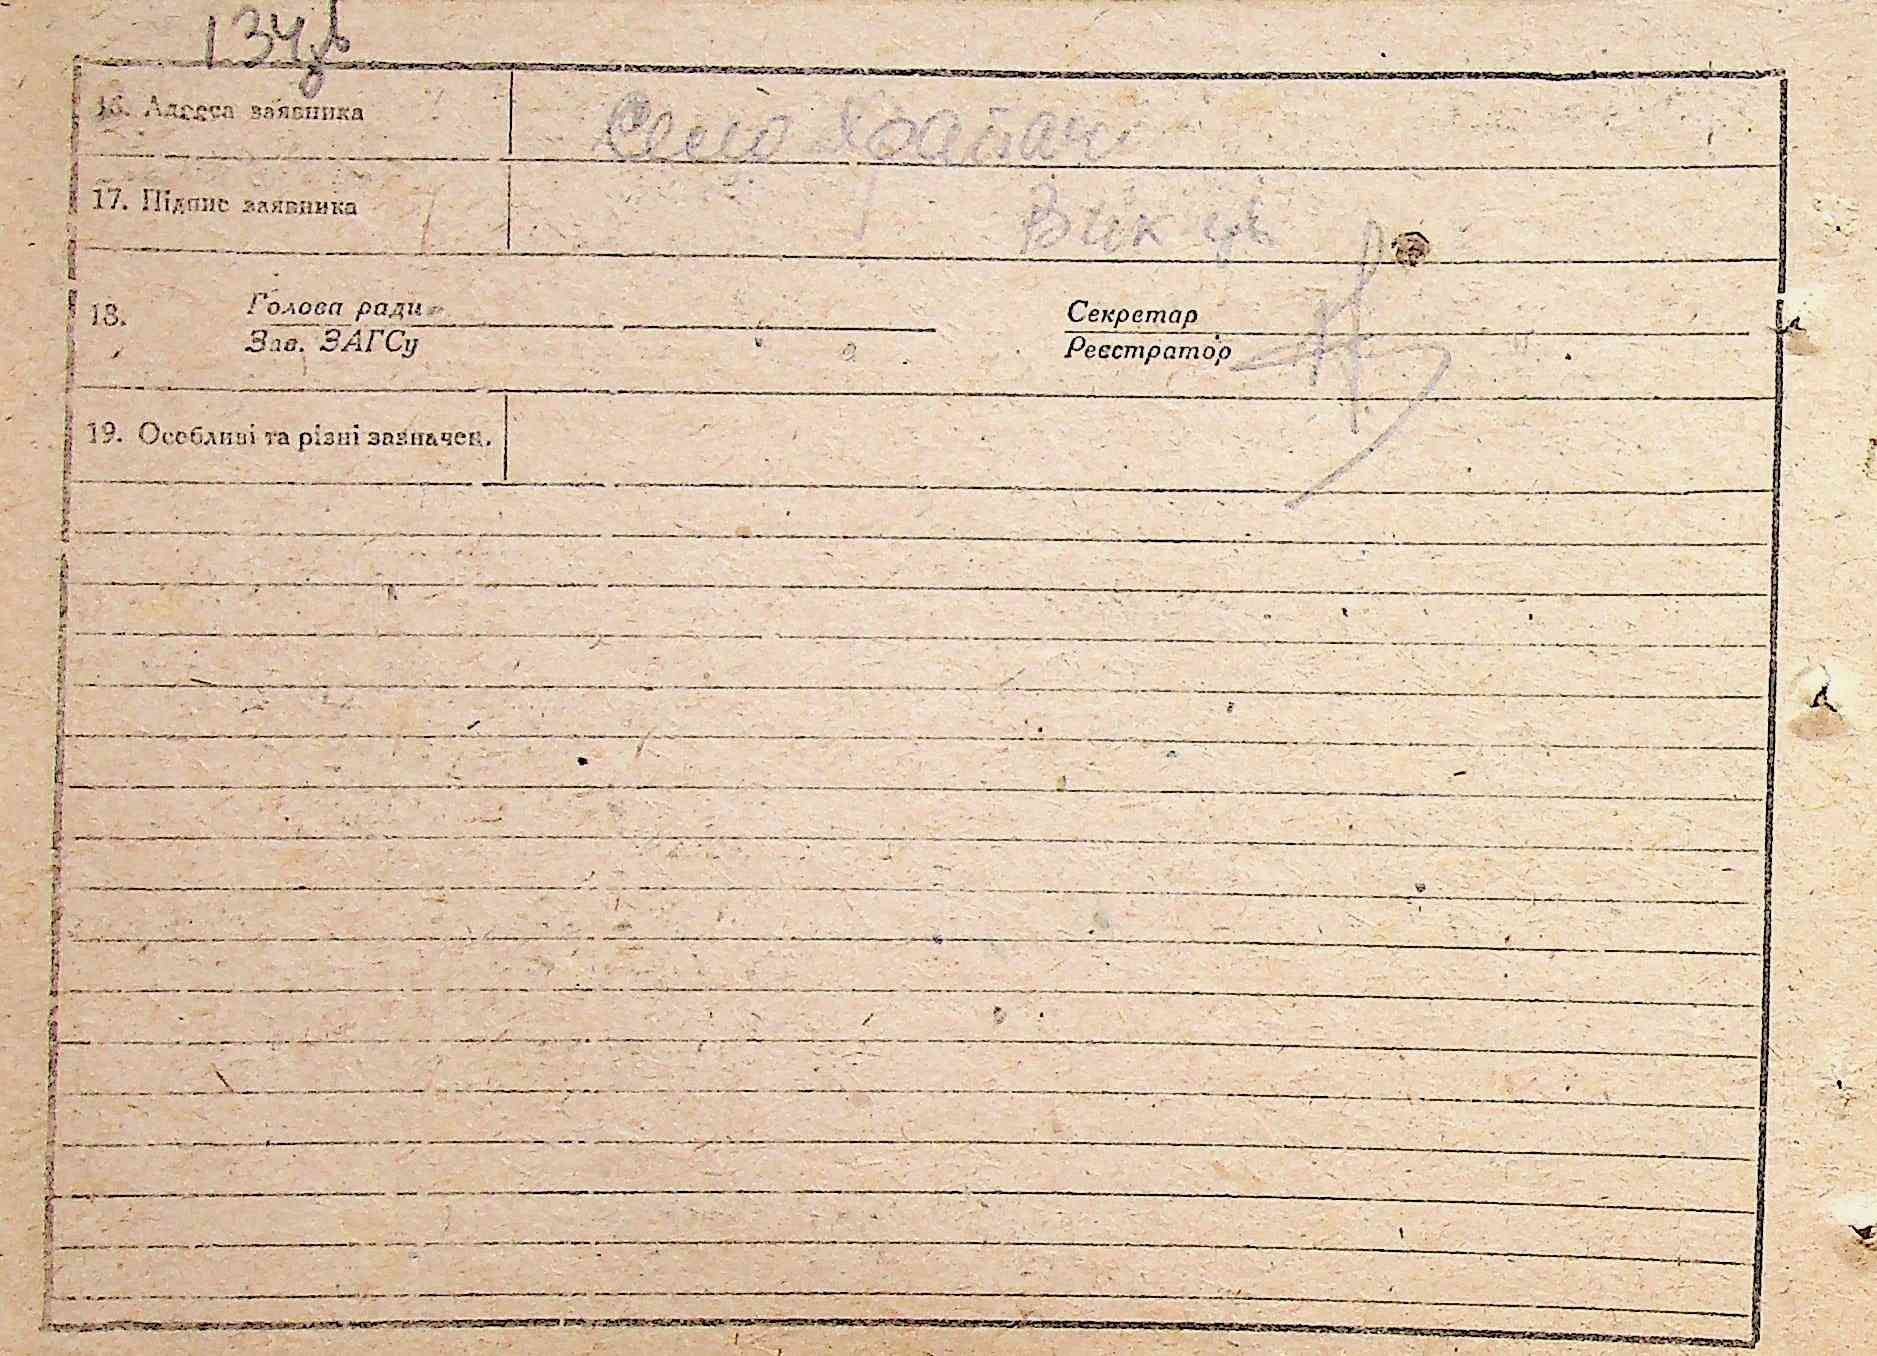 134зв
16. Адреса заявника Село Храпачі
17. Підпис заявника
18. Голова ради Секретар
Зав. ЗАГСу Реєстратор
19. Особливі та різні зазначен.